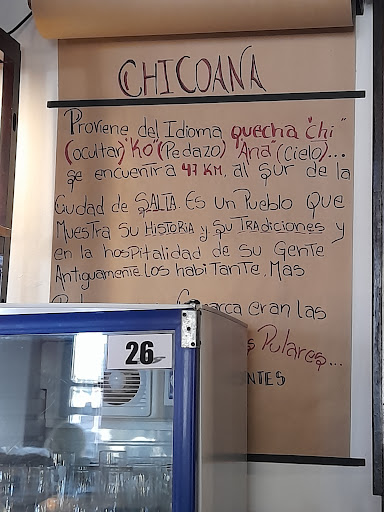 CHICOANA
Proviene del Idioma quecha "chi"
(ocultar) "Ko" (Pedazo) "Ana" (Cielo)...
se encuentra 47 KM, al sur de la
Ciudad de SALTA. Es un Pueblo Que
Muestra Su HISTORIA y Su TRADiciones y
en la hosPitalidad de Su Gente
Antiguamente Los habiTanTe Mas
eran las
Pulares...
26